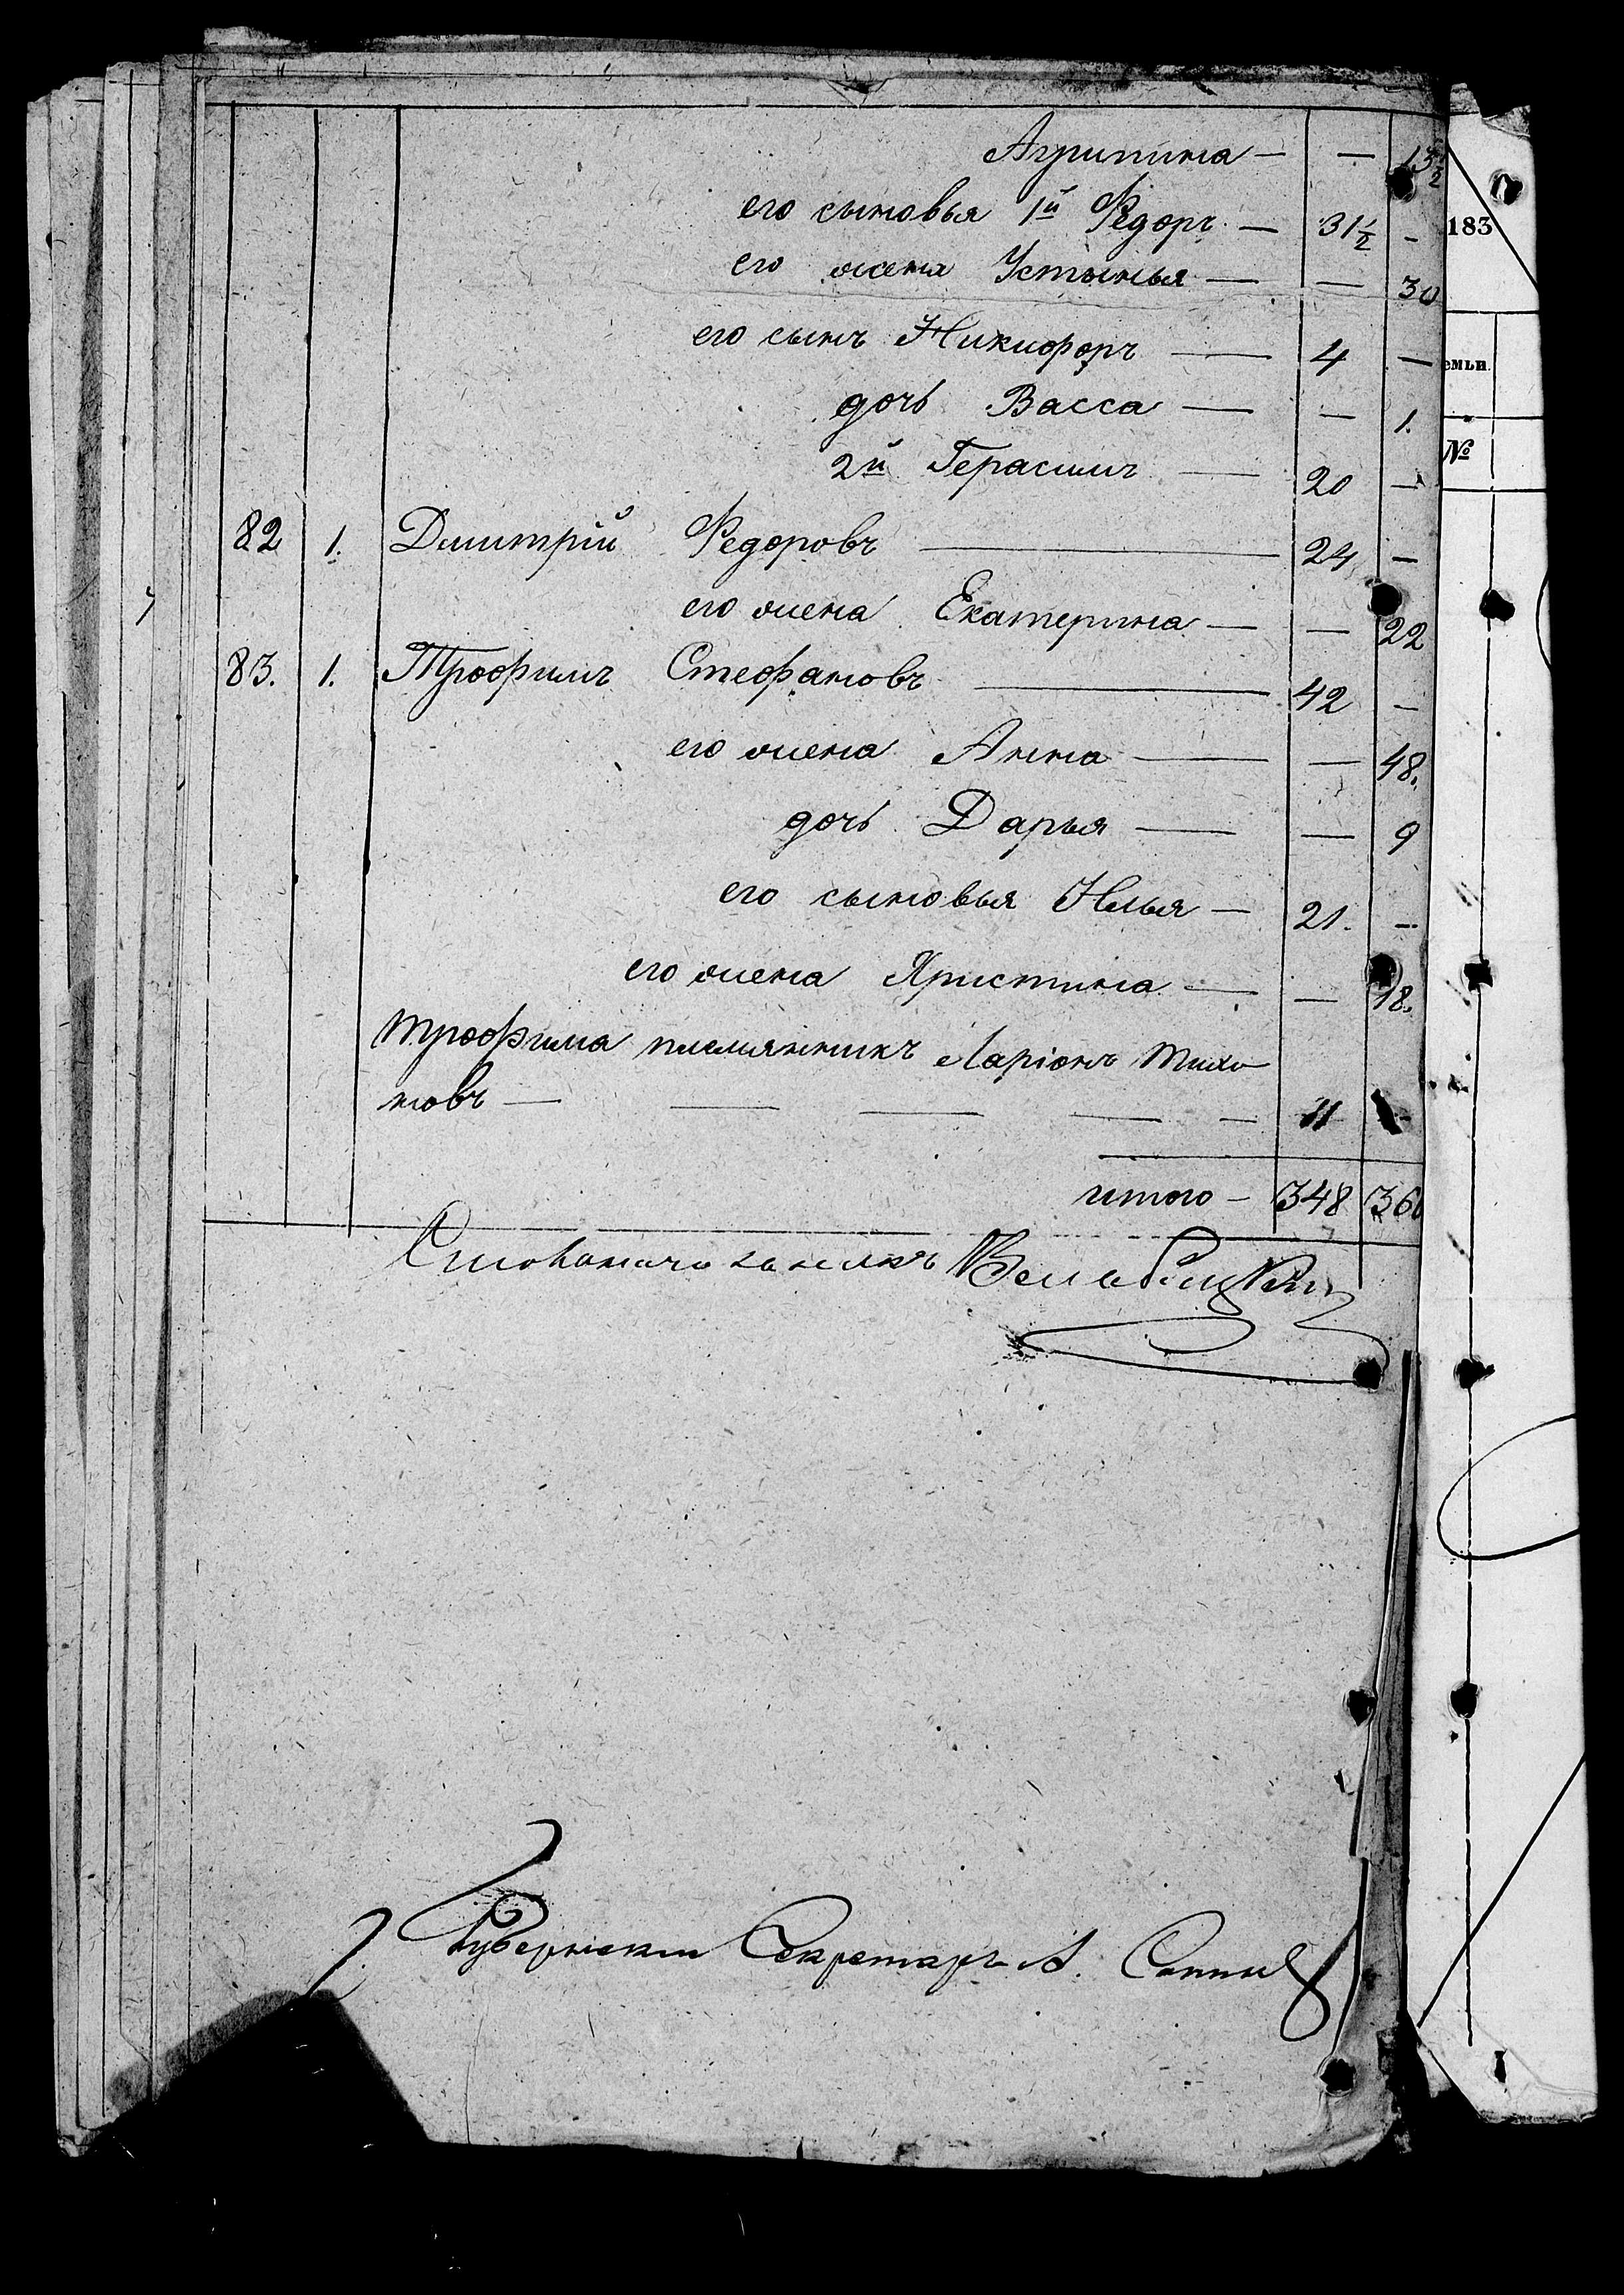 Агрипина — — 13½
его сыновья 1й Федоръ — 31½ —
его жена Устинья — — 30
его сынъ Никифоръ — 4 —
дочь Васса — — 1.
2й Герасимъ — 20 —
82 1. Дмитрій Федоровъ — 24 —
его жена Екатерина — — 22
83. 1. Трофимъ Стефановъ — 42 —
его жена Анна — — 48.
дочь Дарья — — 9
его сыновья Илья — 21. —
его жена Христина — — 18.
Трофима племянникъ Ларіонъ Тихо
новъ — — — — — 11 —
итого — 348 36
Губернскій Секретарь А.
183
емьи.
№